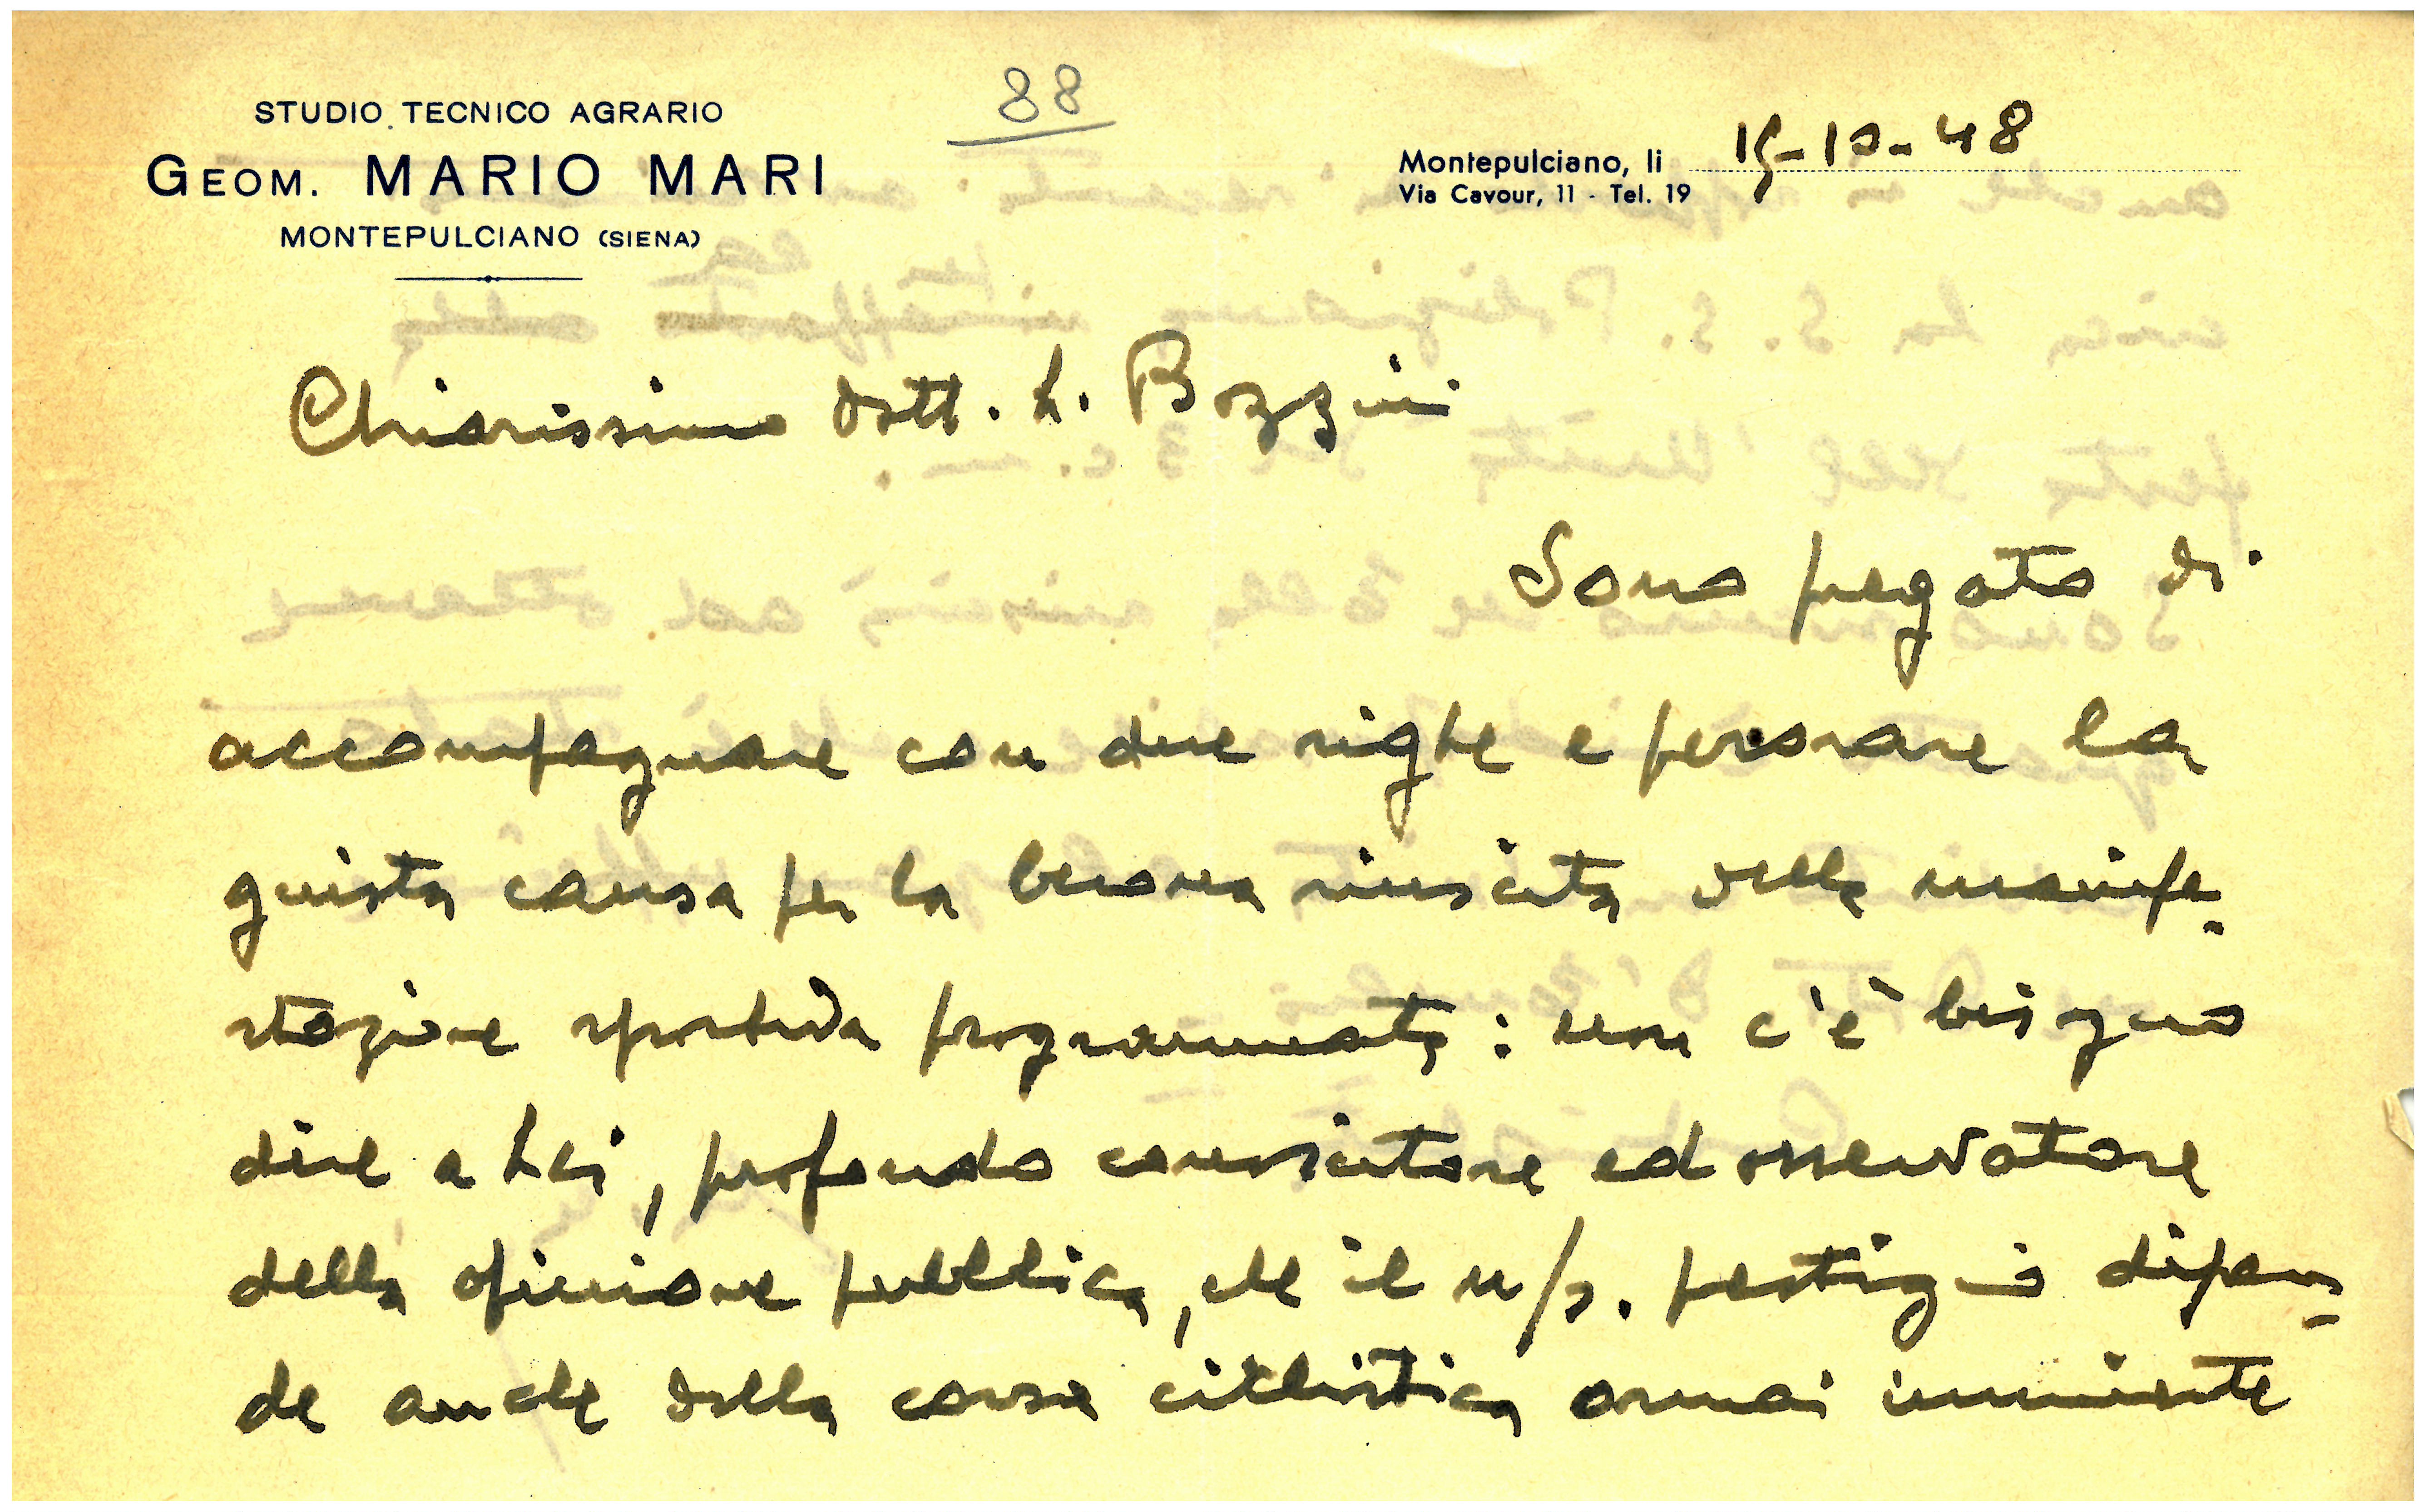 88
STUDIO TECNICO AGRARIO
GEOM. MARIO MARI
MONTEPULCIANO (SIENA)
Montepulciano, li 15-10-48
Via Cavour, 11 - Tel. 19
Chiarissimo dott. L. Bozzini
Sono pregato di
accompagnare con due righe e perorare la
giusta causa per la buona riuscita della manife-
stazione sportiva programmata: non c'è bisogno
dire a Lei, profondo conoscitore ed osservatore
della opinione pubblica, che il n/s. prestigio dipen-
de anche dalla corsa ciclistica ormai imminente